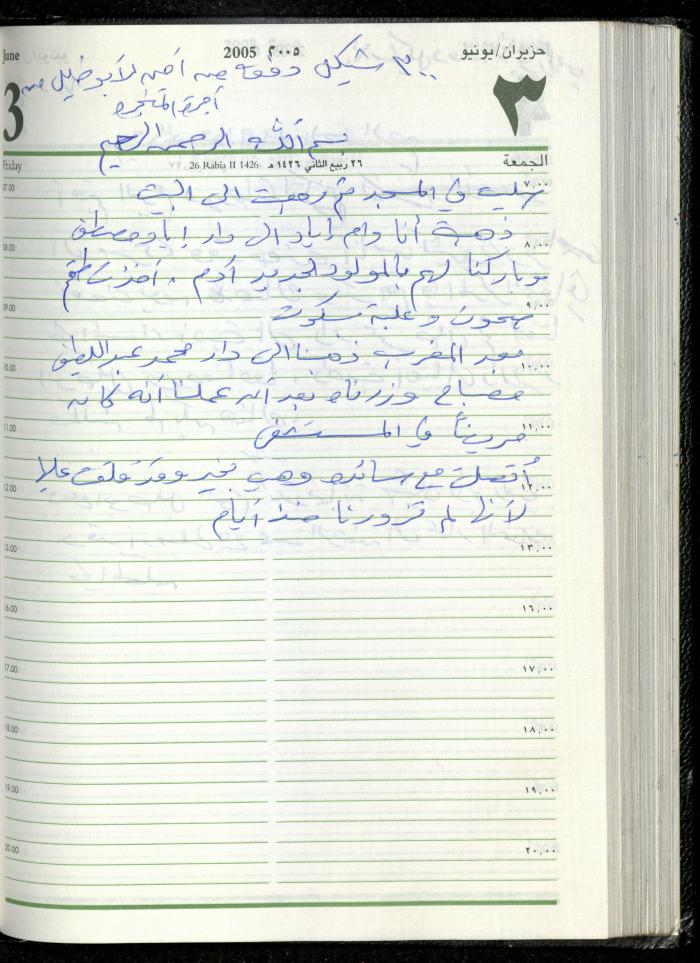 June 2005 ٢٠٠٥ حزيران/يونيو
٣٠٠ شيكل دفعة من أصل لأبو خليل من
أجرة المنجرة
3 ٣
بسم الله الرحمن الرحيم
Friday 26 Rabia II 1426 ٢٦ ربيع الثاني ١٤٢٦ هـ الجمعة
07.00 ٧,٠٠
صليت في المسجد ثم رجعت الى البيت
ذهبت أنا وام إياد الى دار إياد مصطفى
08.00 ٨,٠٠
وباركنا لهم بالمولود الجديد آدم ، أخذت طقم
09.00 ٩,٠٠
صحون وعلبة سكوت
بعد المغرب ذهبنا الى دار محمد عبد اللطيف
10.00 ١٠,٠٠
مصباح وزرناه بعد أن علمنا أنه كان
11.00 ١١,٠٠
مريضاً في المستشفى
أتصلت مع سائده وهي بخير وقد قلقت علينا
12.00 ١٢,٠٠
لأنها لم تزورنا منذ أيام
13.00 ١٣,٠٠
16.00 ١٦,٠٠
17.00 ١٧,٠٠
18.00 ١٨,٠٠
19.00 ١٩,٠٠
20.00 ٢٠,٠٠